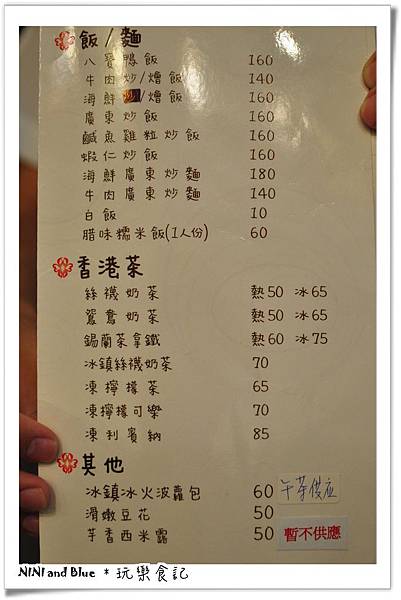 飯/麵
八寶鴨飯 160
牛肉炒/燴飯 140
海鮮炒/燴飯 160
廣東炒飯 160
鹹魚雞粒炒飯 160
蝦仁炒飯 160
海鮮廣東炒麵 180
牛肉廣東炒麵 140
白飯 10
腊味糯米飯(1人份) 60
香港茶
絲襪奶茶 熱50 冰65
鴛鴦奶茶 熱50 冰65
錫蘭茶拿鐵 熱60 冰75
冰鎮絲襪奶茶 70
凍檸檬茶 65
凍檸檬可樂 70
凍利賓納 85
其他
冰鎮冰火波蘿包 60 午茶供应
滑嫩豆花 50
芋香西米露 50 暫不供應
NINI and Blue * 玩樂食記